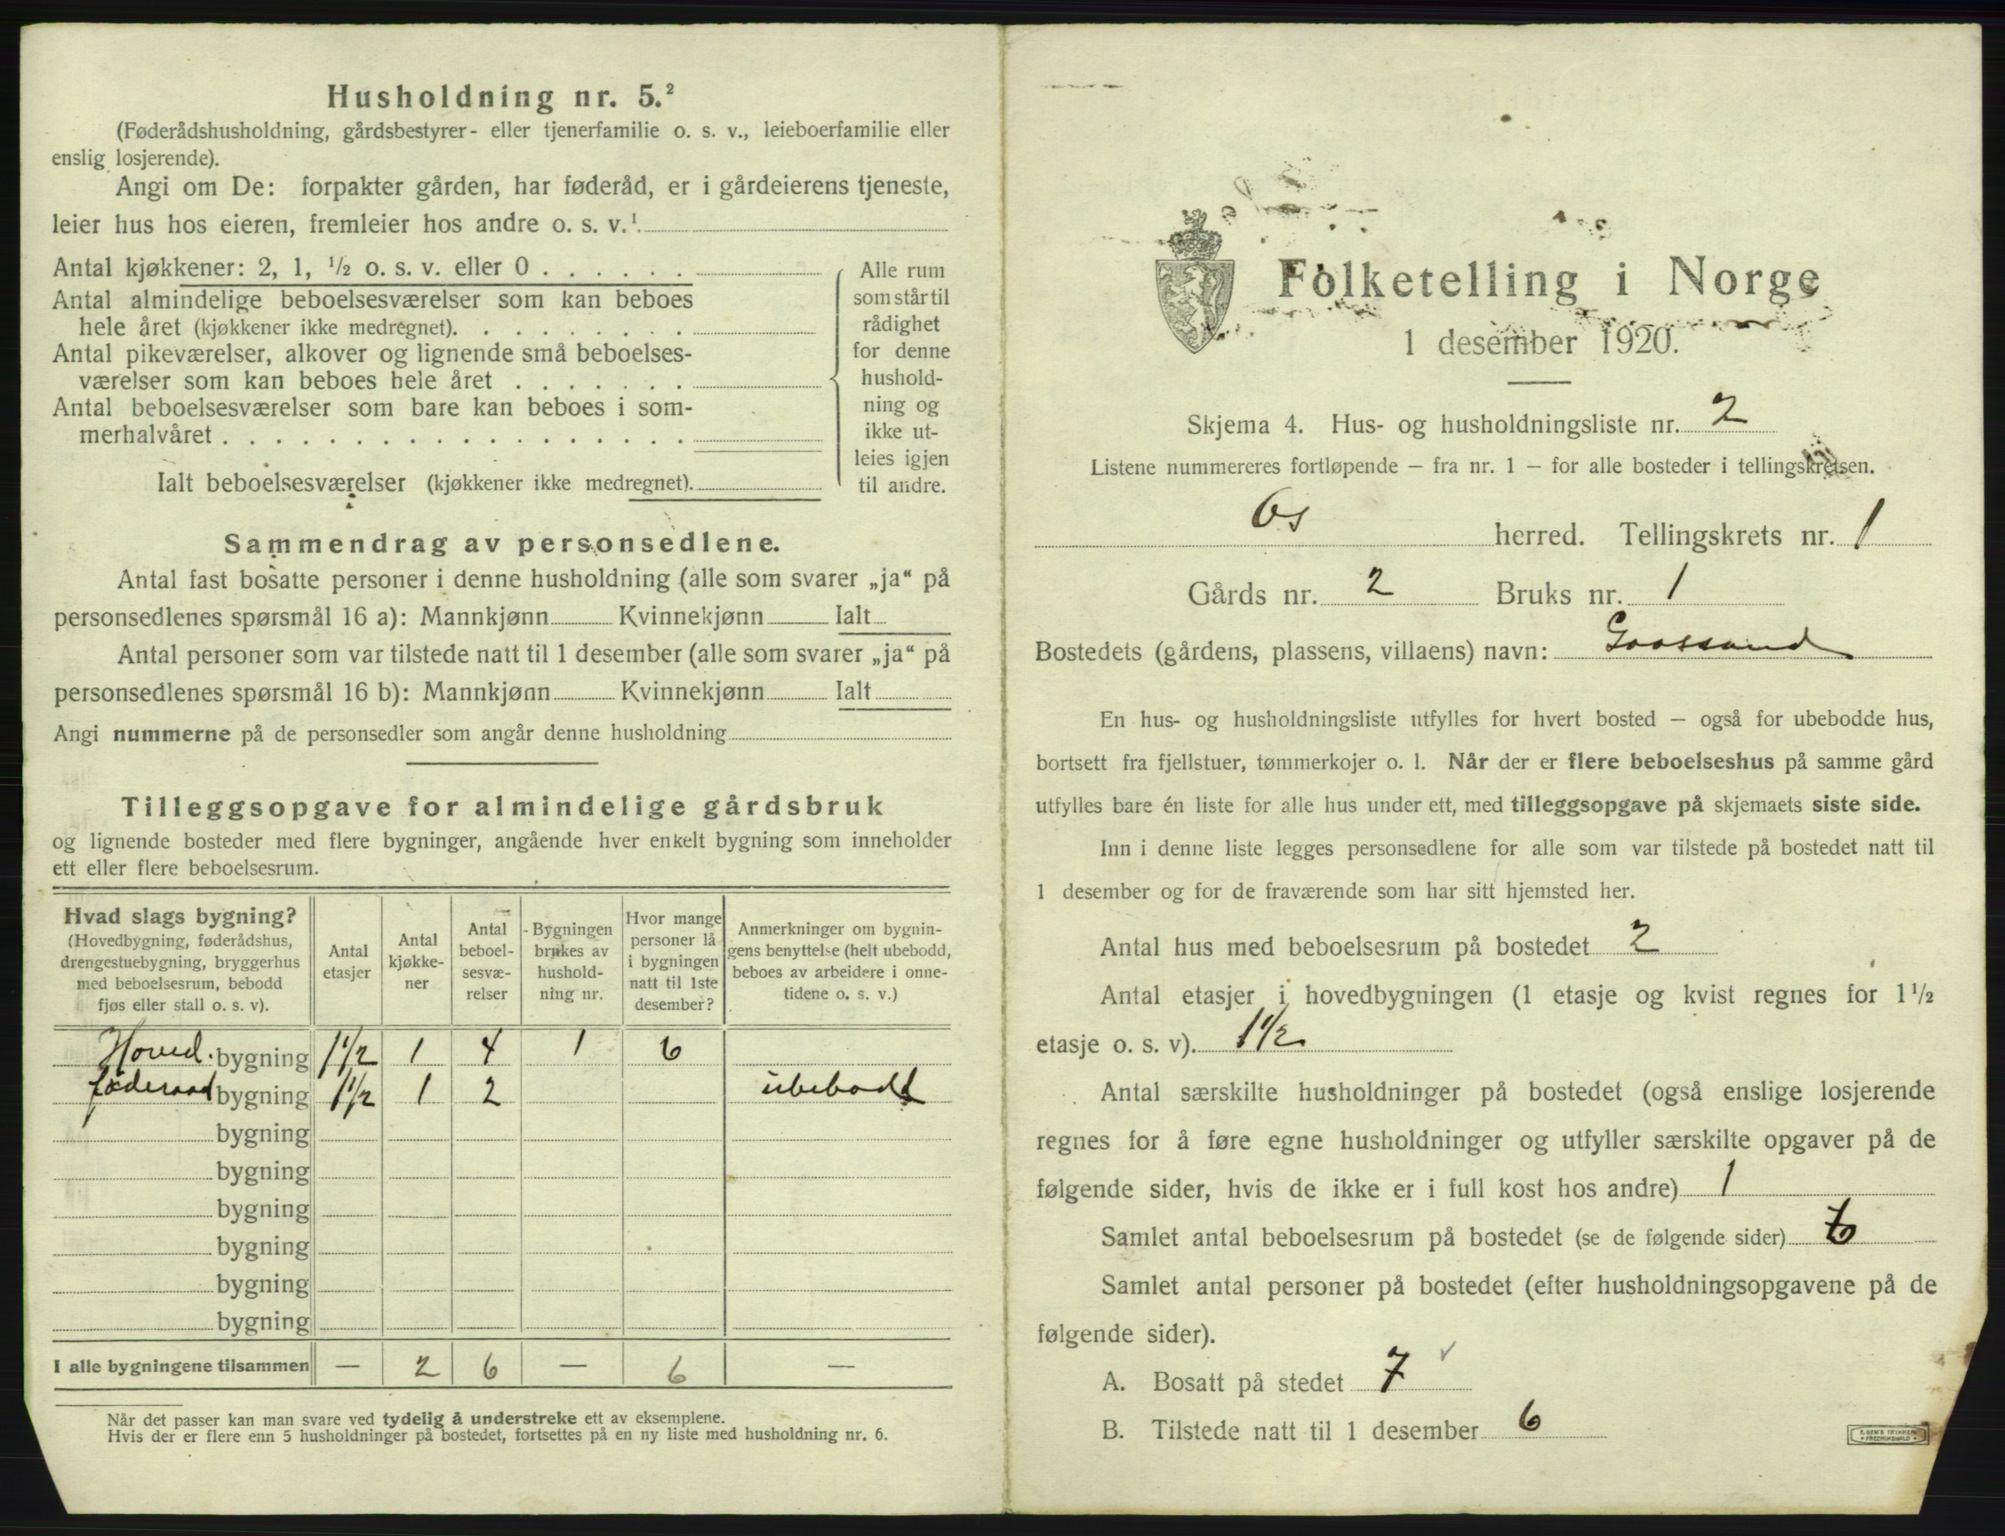 Husholdning nr. 5.²
(Føderådshusholdning, gårdsbestyrer- eller tjenerfamilie o. s. v., leieboerfamilie eller
enslig losjerende).
Angi om De: forpakter gården, har føderåd, er i gårdeierens tjeneste,
leier hus hos eieren, fremleier hos andre o. s. v.¹
Antal kjøkkener: 2, 1, ½ o. s. v. eller 0
Antal almindelige beboelsesværelser som kan beboes
hele året (kjøkkener ikke medregnet).
Antal pikeværelser, alkover og lignende små beboelses-
værelser som kan beboes hele året
Antal beboelsesværelser som bare kan beboes i som-
merhalvåret
Ialt beboelsesværelser (kjøkkener ikke medregnet).
Alle rum
som står til
rådighet
for denne
hushold-
ning og
ikke ut-
leies igjen
til andre.
Sammendrag av personsedlene.
Antal fast bosatte personer i denne husholdning (alle som svarer „ja“ på
personsedlenes spørsmål 16 a): Mannkjønn Kvinnekjønn Ialt
Antal personer som var tilstede natt til 1 desember (alle som svarer „ja“ på
personsedlenes spørsmål 16 b): Mannkjønn Kvinnekjønn Ialt
Angi nummerne på de personsedler som angår denne husholdning
Tilleggsopgave for almindelige gårdsbruk
og lignende bosteder med flere bygninger, angående hver enkelt bygning som inneholder
ett eller flere beboelsesrum.
Hvad slags bygning?
(Hovedbygning, føderådshus,
drengestuebygning, bryggerhus
med beboelsesrum, bebodd
fjøs eller stall o. s. v).
Antal
etasjer
Antal
kjøkke-
ner
Antal
beboel-
sesvæ-
relser
Bygningen
brukes av
hushold-
ning nr.
Hvor mange
personer lå
i bygningen
natt til 1ste
desember?
Anmerkninger om bygnin-
gens benyttelse (helt ubebodd,
beboes av arbeidere i onne-
tidene o. s. v.)
Hoved. bygning 1½ 1 4 1 6
føderaad bygning 1½ 1 2 ubebodt
bygning
bygning
bygning
bygning
bygning
bygning
I alle bygningene tilsammen — 2 6 — 6 —
Når det passer kan man svare ved tydelig å understreke ett av eksemplene.
Hvis der er flere enn 5 husholdninger på bostedet, fortsettes på en ny liste med husholdning nr. 6.
Folketelling i Norge
1 desember 1920.
Skjema 4. Hus- og husholdningsliste nr. 2
Listene nummereres fortløpende – fra nr. 1 – for alle bosteder i tellingskretsen.
Os herred. Tellingskrets nr. 1
Gårds nr. 2 Bruks nr. 1
Bostedets (gårdens, plassens, villaens) navn:
En hus- og husholdningsliste utfylles for hvert bosted – også for ubebodde hus,
bortsett fra fjellstuer, tømmerkojer o. l. Når der er flere beboelseshus på samme gård
utfylles bare én liste for alle hus under ett, med tilleggsopgave på skjemaets siste side.
Inn i denne liste legges personsedlene for alle som var tilstede på bostedet natt til
1 desember og for de fraværende som har sitt hjemsted her.
Antal hus med beboelsesrum på bostedet 2
Antal etasjer i hovedbygningen (1 etasje og kvist regnes for 1½
etasje o. s. v). 1½
Antal særskilte husholdninger på bostedet (også enslige losjerende
regnes for å føre egne husholdninger og utfyller særskilte opgaver på de
følgende sider, hvis de ikke er i full kost hos andre) 1
Samlet antal beboelsesrum på bostedet (se de følgende sider)
Samlet antal personer på bostedet (efter husholdningsopgavene på de
følgende sider).
A. Bosatt på stedet 7 ✓
B. Tilstede natt til 1 desember 6